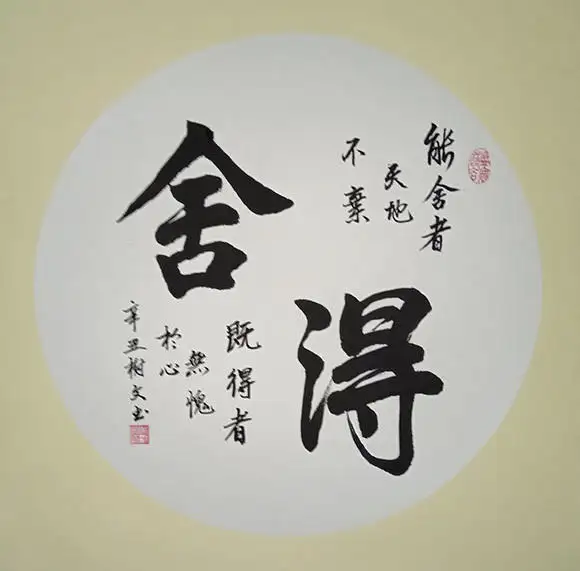 舍
得
能舍者
天地
不棄
既得者
無愧
於心
辛丑樹文书